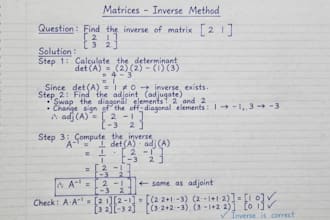 Matrices - Inverse Method
Question: Find the inverse of matrix [ 2 1 ]
[ 2 1 ]
[ 3 2 ]
Solution:
Step 1: Calculate the determinant
det(A) = (2)(2) - (1)(3)
= 4 - 3
= 1
Since det(A) = 1 ≠ 0 → inverse exists.
Step 2: Find the adjoint (adjugate)
• Swap the diagonal elements: 2 and 2
• Change sign of the off-diagonal elements: 1 → -1, 3 → -3
∴ adj(A) = [ 2 -1 ]
[ -3 2 ]
Step 3: Compute the inverse
A⁻¹ = 1/det(A) · adj(A)
= 1/1 · [ 2 -1 ]
[ -3 2 ]
= [ 2 -1 ]
[ -3 2 ]
∴ A⁻¹ = [ 2 -1 ] ← same as adjoint
[ -3 2 ]
Check: A·A⁻¹ = [ 2 1 ] [ 2 -1 ] = = [ 1 0 ] ✓
[ 3 2 ] [ 0 1 ] ✓
✓ Inverse is correct